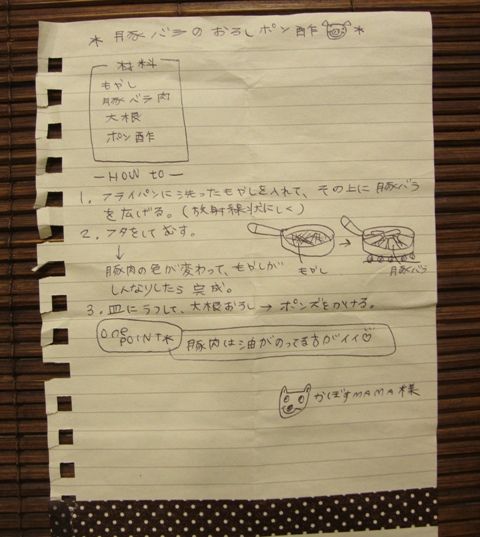 * 豚バラのおろしポン酢 *
材料
もやし
豚バラ肉
大根
ポン酢
—HOW to—
1. フライパンに洗ったもやしを入れて、その上に豚バラ
を広げる。(放射線状にしく)
2. フタをしてむす。
↓
豚肉の色が変わって、もやしが
しんなりしたら完成。
もやし
→
豚バラ
3. 皿にうつして、大根おろし→ポンズをかける。
one
POINT*
豚肉は油がのってる方がイイ♡
かぼすMAMA様